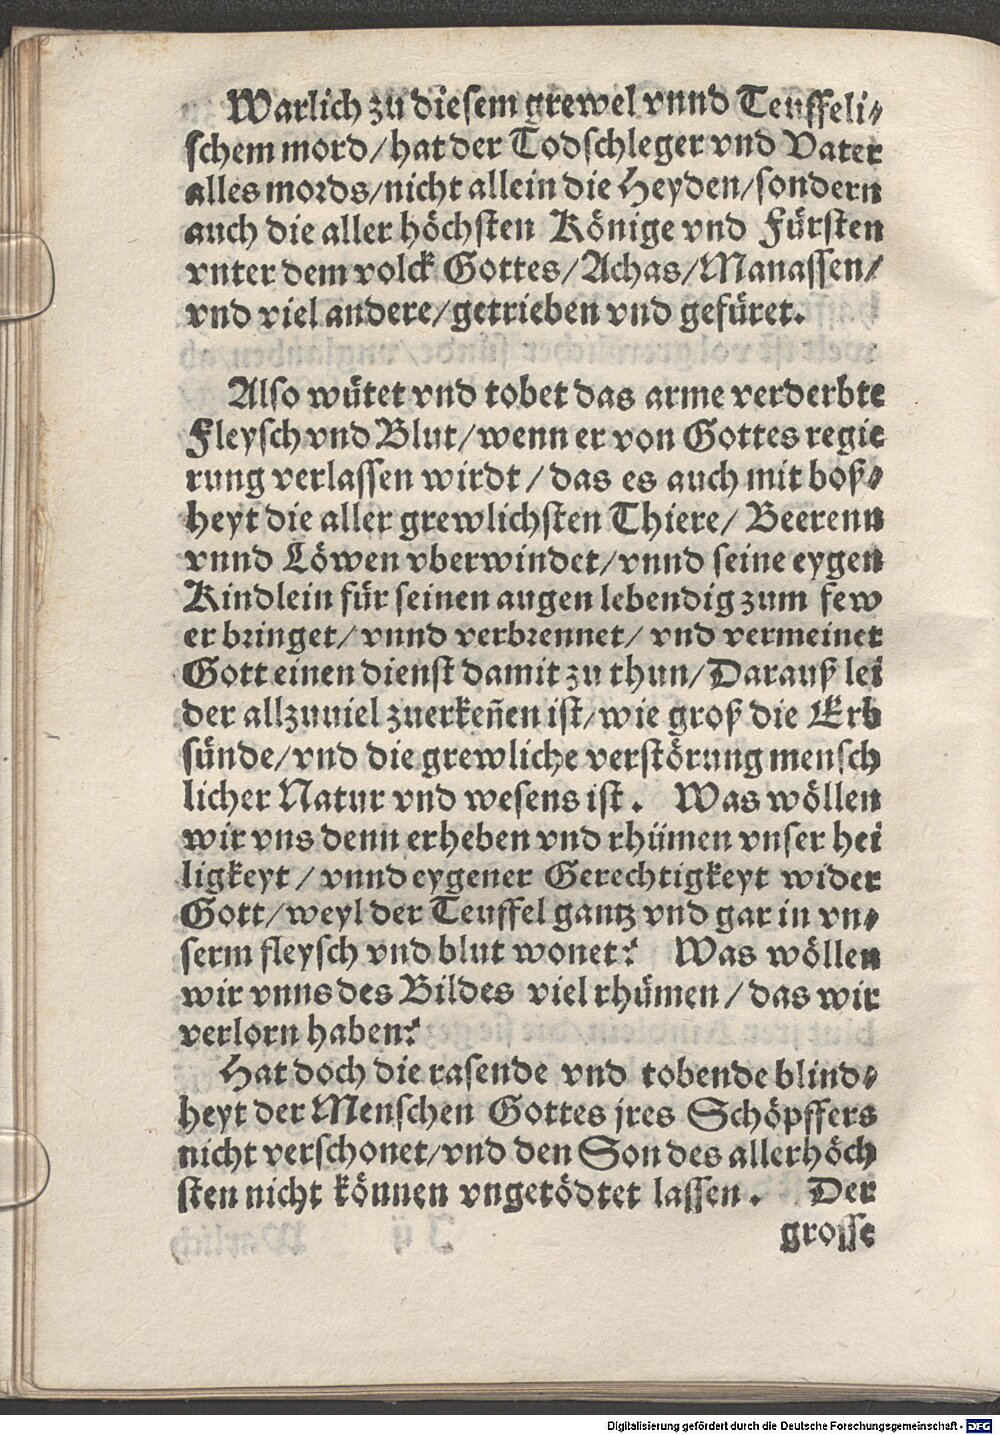 Warlich zu diesem grewel vnnd Teuffeli⸗
schem mord/hat der Todschleger vnd Vater
alles mords/nicht allein die Heyden/sondern
auch die aller höchsten Könige vnd Fürsten
vnter dem volck Gottes/Achas/Manassen/
vnd viel andere/getrieben vnd gefüret.
Also wütet vnd tobet das arme verderbte
Fleysch vnd Blut/wenn er von Gottes regie
rung verlassen wirdt/das es auch mit boß⸗
heyt die aller grewlichsten Thiere/Beerenn
vnnd Löwen vberwindet/vnnd seine eygen
Kindlein für seinen augen lebendig zum few
er bringet/vnnd verbrennet/vnd vermeinet
Gott einen dienst damit zu thun/Darauß lei
der allzuuiel zuerkeñen ist/wie groß die Erb
sünde/vnd die grewliche verstörung mensch
licher Natur vnd wesens ist. Was wöllen
wir vns denn erheben vnd rhümen vnser hei
ligkeyt/vnnd eygener Gerechtigkeyt wider
Gott/weyl der Teuffel gantz vnd gar in vn⸗
serm fleysch vnd blut wonet? Was wöllen
wir vnns des Bildes viel rhümen/das wir
verlorn haben?
Hat doch die rasende vnd tobende blind⸗
heyt der Menschen Gottes jres Schöpffers
nicht verschonet/vnd den Son des allerhöch
sten nicht können vngetödtet lassen. Der
grosse
Digitalisierung gefördert durch die Deutsche Forschungsgemeinschaft - DFG